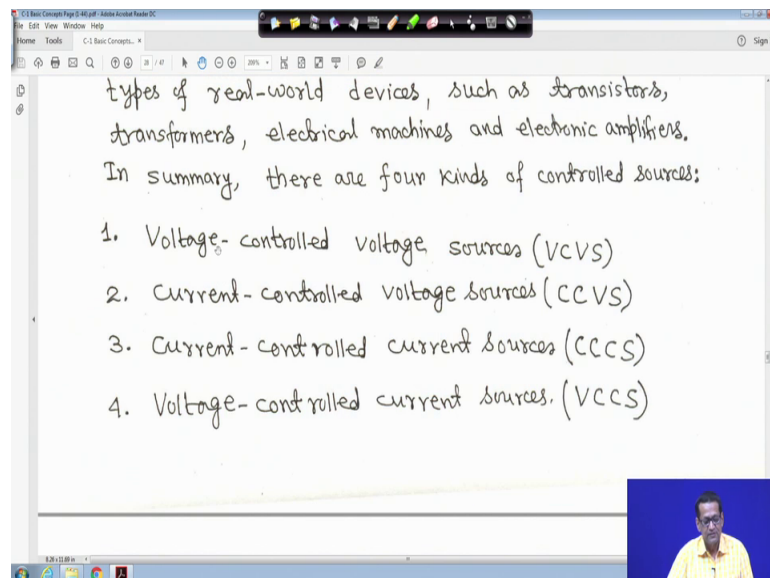 C-1 Basic Concepts Page (1-44).pdf - Adobe Acrobat Reader DC
File Edit View Window Help
Home Tools C-1 Basic Concepts... × Sign
28 / 47 200%
types of real-world devices, such as transistors,
transformers, electrical machines and electronic amplifiers.
In summary, there are four kinds of controlled sources:
1. Voltage-controlled voltage sources (VCVS)
2. Current-controlled voltage sources (CCVS)
3. Current-controlled current sources (CCCS)
4. Voltage-controlled current sources. (VCCS)
8.26 x 11.69 in